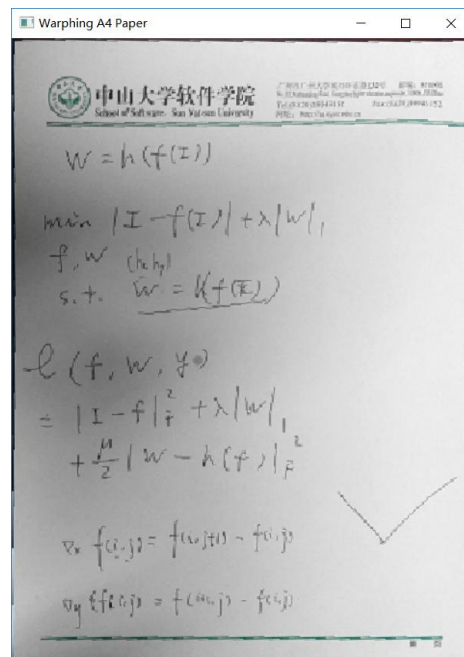 Warphing A4 Paper
中山大学软件学院
School of Software, Sun Yat-sen University
W = h(f(I))
min |I - f(I)| + λ|W|₁
f, w (hx hy)
s.t. W = h(f(I))
ℓ(f, w, y)
= |I - f|²_F + λ|W|₁
+ μ/2 |W - h(f)|²_F
∇x f(i,j) = f(i,j+1) - f(i,j)
∇y f(i,j) = f(i+1,j) - f(i,j)